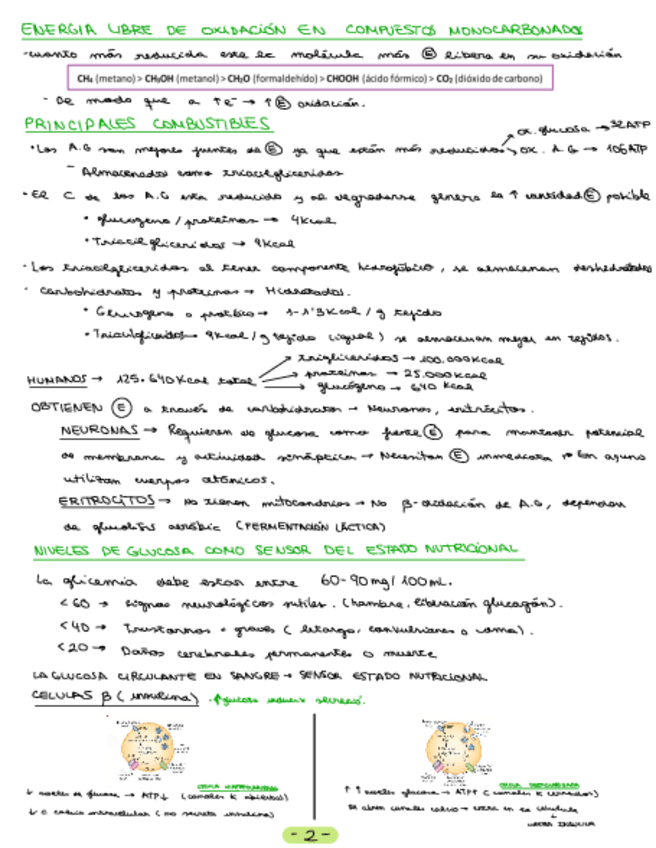 ENERGIA LIBRE DE OXIDACIÓN EN COMPUESTOS MONOCARBONADOS
-cuanto más reducida este la molécula más Ⓔ libera en su oxidación
CH₄ (metano) > CH₃OH (metanol) > CH₂O (formaldehído) > CHOOH (ácido fórmico) > CO₂ (dióxido de carbono)
- De modo que a ↑e⁻ → ↑Ⓔ oxidación.
PRINCIPALES COMBUSTIBLES
ox. glucosa → 32ATP
• Los A.G son mejores fuentes de Ⓔ ya que están más reducidos → ox. A.G → 106ATP
- Almacenados como triacilgliceridos
• El C de los A.G esta reducido y al degradarse genera la ↑ cantidad Ⓔ posible
• glucogeno / proteínas → 4Kcal
• Triacilgliceridos → 9Kcal
• Los triacilgliceridos al tener componente hidrofóbico, se almacenan deshidratados
• Carbohidratos y proteinas → Hidratados.
• Glucogeno o proteico → 1-1'3Kcal / g tejido
• Triacilgliceridos → 9Kcal / g tejido (igual) se almacenan mejor en tejidos.
trigliceridos → 100.000Kcal
HUMANOS → 125.640Kcal total → proteinas → 25.000Kcal
glucógeno → 640 Kcal
OBTIENEN Ⓔ a través de carbohidratos → Neuronas, eritrocitos.
NEURONAS → Requieren de glucosa como fuente Ⓔ para mantener potencial
de membrana y actividad sináptica → Necesitan Ⓔ inmediata → En ayuno
utilizan cuerpos cetónicos.
ERITROCITOS → No tienen mitocondrias → No β-oxidación de A.G, dependen
de glucolisis aeróbic (FERMENTACIÓN LÁCTICA)
NIVELES DE GLUCOSA COMO SENSOR DEL ESTADO NUTRICIONAL
La glicemia debe estar entre 60-90 mg/100mL.
<60 → Signos neurológicos sutiles. (hambre, liberación glucagón).
<40 → Trastornos + graves (letargo, convulsiones o coma).
<20 → Daños cerebrales permanentes o muerte
LA GLUCOSA CIRCULANTE EN SANGRE → SENSOR ESTADO NUTRICIONAL
CELULAS β (insulina) • ↑glucosa induce secreció.
↓ niveles de glucosa → ATP↓ (canales K abiertos)
↓ calcio intracelular (no secreta insulina)
↑↑ niveles glucosa → ATP↑ (canales K cerrados)
Se abren canales calcio → entra en la célula
- 2 -